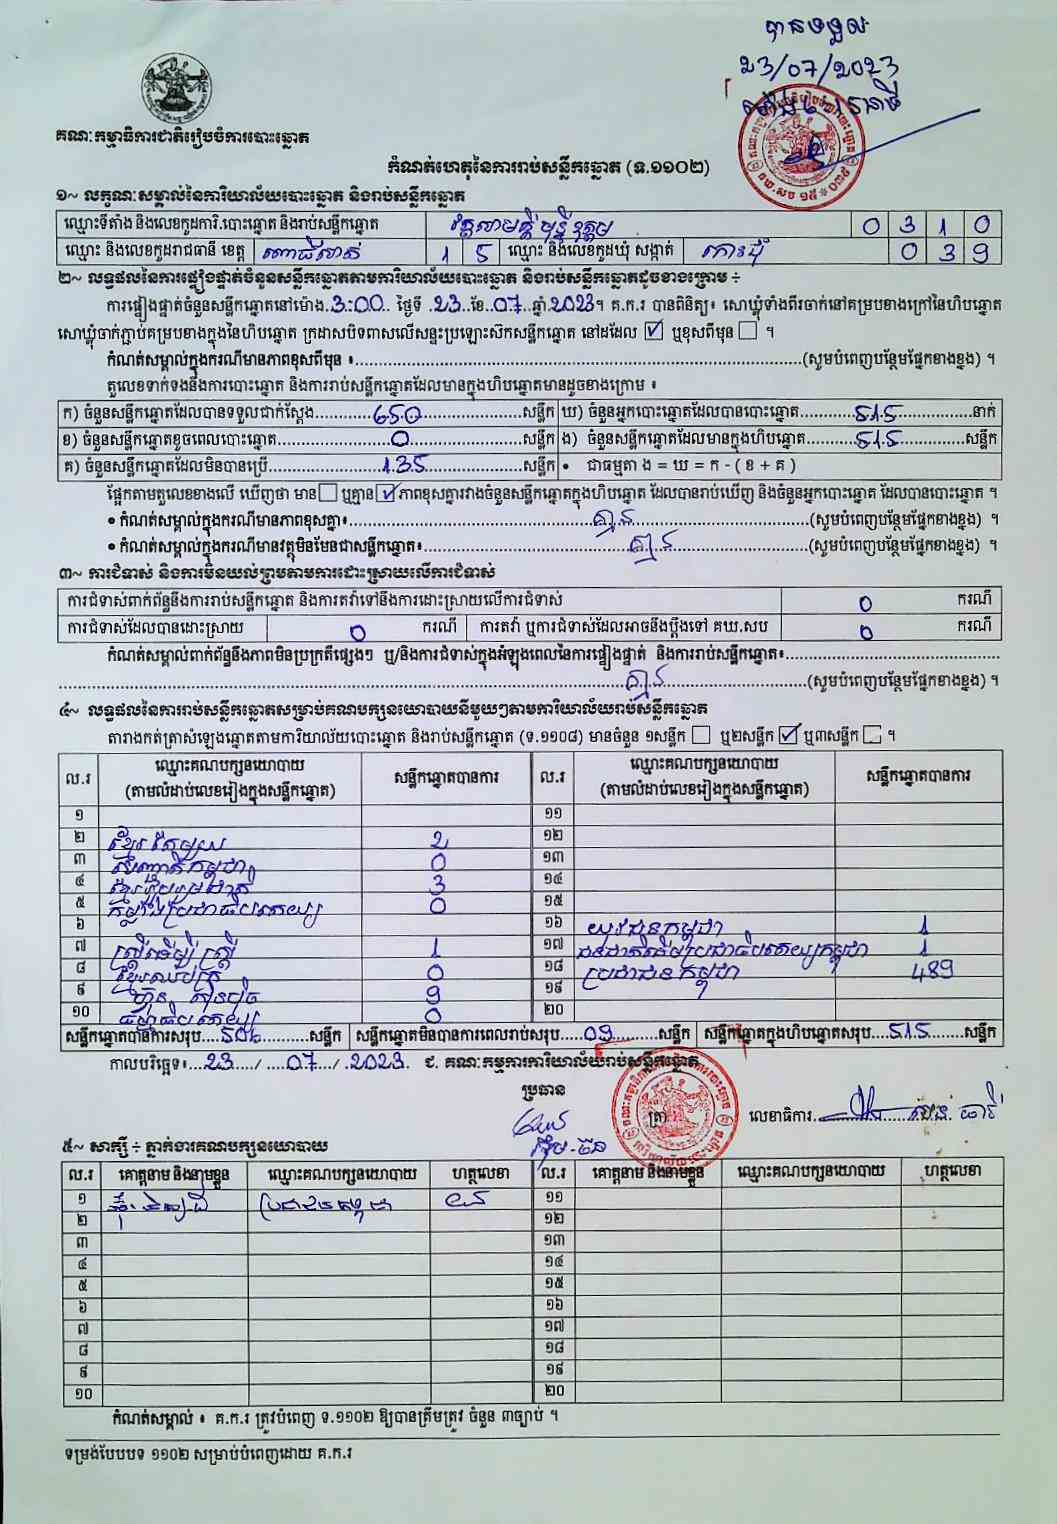 បានទទួល
23/07/2023
គណៈកម្មាធិការជាតិរៀបចំការបោះឆ្នោត
កំណត់ហេតុនៃការរាប់សន្លឹកឆ្នោត (ទ.១១០២)
១~ លក្ខណៈសម្គាល់នៃការិយាល័យបោះឆ្នោត និងរាប់សន្លឹកឆ្នោត
ឈ្មោះទីតាំង និងលេខកូដការិ.បោះឆ្នោត និងរាប់សន្លឹកឆ្នោត 0 3 1 0
ឈ្មោះ និងលេខកូដរាជធានី ខេត្ត ពោធិ៍សាត់ 1 5 ឈ្មោះ និងលេខកូដឃុំ សង្កាត់ 0 3 9
២~ លទ្ធផលនៃការផ្ទៀងផ្ទាត់ចំនួនសន្លឹកឆ្នោតតាមការិយាល័យបោះឆ្នោត និងរាប់សន្លឹកឆ្នោតដូចខាងក្រោម ÷
ការផ្ទៀងផ្ទាត់ចំនួនសន្លឹកឆ្នោតនៅម៉ោង.3:00.. ថ្ងៃទី .23.ខែ.07..ឆ្នាំ.2023។ គ.ក.រ បានពិនិត្យ៖ សោឃ្លុំទាំងពីរចាក់នៅគម្របខាងក្រៅនៃហិបឆ្នោត
សោឃ្លុំចាក់ភ្ជាប់គម្របខាងក្នុងនៃហិបឆ្នោត ក្រដាសបិទពាសលើសន្ទះប្រឡោះស៊កសន្លឹកឆ្នោត នៅដដែល ☑ ឬខុសពីមុន ☐ ។
កំណត់សម្គាល់ក្នុងករណីមានភាពខុសពីមុន ៖....(សូមបំពេញបន្ថែមផ្នែកខាងខ្នង) ។
តួលេខទាក់ទងនឹងការបោះឆ្នោត និងការរាប់សន្លឹកឆ្នោតដែលមានក្នុងហិបឆ្នោតមានដូចខាងក្រោម ៖
ក) ចំនួនសន្លឹកឆ្នោតដែលបានទទួលជាក់ស្តែង....650....សន្លឹក ឃ) ចំនួនអ្នកបោះឆ្នោតដែលបានបោះឆ្នោត....515....នាក់
ខ) ចំនួនសន្លឹកឆ្នោតខូចពេលបោះឆ្នោត....0....សន្លឹក ង) ចំនួនសន្លឹកឆ្នោតដែលមានក្នុងហិបឆ្នោត....515....សន្លឹក
គ) ចំនួនសន្លឹកឆ្នោតដែលមិនបានប្រើ....135....សន្លឹក • ជាធម្មតា ង = ឃ = ក - ( ខ + គ )
ផ្អែកតាមតួលេខខាងលើ ឃើញថា មាន ☐ ឬគ្មាន ☑ ភាពខុសគ្នារវាងចំនួនសន្លឹកឆ្នោតក្នុងហិបឆ្នោត ដែលបានរាប់ឃើញ និងចំនួនអ្នកបោះឆ្នោត ដែលបានបោះឆ្នោត ។
• កំណត់សម្គាល់ក្នុងករណីមានភាពខុសគ្នា៖....គ្មាន....(សូមបំពេញបន្ថែមផ្នែកខាងខ្នង) ។
• កំណត់សម្គាល់ក្នុងករណីមានវត្ថុមិនមែនជាសន្លឹកឆ្នោត៖....គ្មាន....(សូមបំពេញបន្ថែមផ្នែកខាងខ្នង) ។
៣~ ការជំទាស់ និងការមិនយល់ព្រមតាមការដោះស្រាយលើការជំទាស់
ការជំទាស់ពាក់ព័ន្ធនឹងការរាប់សន្លឹកឆ្នោត និងការតវ៉ាទៅនឹងការដោះស្រាយលើការជំទាស់ 0 ករណី
ការជំទាស់ដែលបានដោះស្រាយ 0 ករណី ការតវ៉ា ឬការជំទាស់ដែលអាចនឹងប្តឹងទៅ គឃ.សប 0 ករណី
កំណត់សម្គាល់ពាក់ព័ន្ធនឹងភាពមិនប្រក្រតីផ្សេងៗ ឬ/និងការជំទាស់ក្នុងអំឡុងពេលនៃការផ្ទៀងផ្ទាត់ និងការរាប់សន្លឹកឆ្នោត៖....
....គ្មាន....(សូមបំពេញបន្ថែមផ្នែកខាងខ្នង) ។
៤~ លទ្ធផលនៃការរាប់សន្លឹកឆ្នោតសម្រាប់គណបក្សនយោបាយនីមួយៗតាមការិយាល័យរាប់សន្លឹកឆ្នោត
តារាងកត់ត្រាសំឡេងឆ្នោតតាមការិយាល័យបោះឆ្នោត និងរាប់សន្លឹកឆ្នោត (ទ.១១០៨) មានចំនួន ១សន្លឹក ☐ ឬ២សន្លឹក ☑ ឬ៣សន្លឹក ☐ ។
ល.រ ឈ្មោះគណបក្សនយោបាយ (តាមលំដាប់លេខរៀងក្នុងសន្លឹកឆ្នោត) សន្លឹកឆ្នោតបានការ ល.រ ឈ្មោះគណបក្សនយោបាយ (តាមលំដាប់លេខរៀងក្នុងសន្លឹកឆ្នោត) សន្លឹកឆ្នោតបានការ
១ ១១
២ ខ្មែរតែមួយ 2 ១២
៣ សញ្ជាតិកម្ពុជា 0 ១៣
៤ ខ្មែររួបរួមជាតិ 3 ១៤
៥ កម្លាំងប្រជាធិបតេយ្យ 0 ១៥
៦ ១៦ យុវជនកម្ពុជា 1
៧ ស្រ្តីដើម្បីស្រ្តី 1 ១៧ ជនជាតិដើមប្រជាធិបតេយ្យកម្ពុជា 1
៨ ខ្មែរឈប់ក្រ 0 ១៨ ប្រជាជនកម្ពុជា 489
៩ ហ្វ៊ុនស៊ិនប៉ិច 9 ១៩
១០ ធម្មាធិបតេយ្យ 0 ២០
សន្លឹកឆ្នោតបានការសរុប....506....សន្លឹក សន្លឹកឆ្នោតមិនបានការពេលរាប់សរុប....09....សន្លឹក សន្លឹកឆ្នោតក្នុងហិបឆ្នោតសរុប....515....សន្លឹក
កាលបរិច្ឆេទ៖...23..../....07..../..2023. ជ. គណៈកម្មការការិយាល័យរាប់សន្លឹកឆ្នោត
ប្រធាន
ត្រា
លេខាធិការ....
៥~ សាក្សី ÷ ភ្នាក់ងារគណបក្សនយោបាយ
ល.រ គោត្តនាម និងនាមខ្លួន ឈ្មោះគណបក្សនយោបាយ ហត្ថលេខា ល.រ គោត្តនាម និងនាមខ្លួន ឈ្មោះគណបក្សនយោបាយ ហត្ថលេខា
១ ប្រជាជនកម្ពុជា ១១
២ ១២
៣ ១៣
៤ ១៤
៥ ១៥
៦ ១៦
៧ ១៧
៨ ១៨
៩ ១៩
១០ ២០
កំណត់សម្គាល់ ៖ គ.ក.រ ត្រូវបំពេញ ទ.១១០២ ឱ្យបានត្រឹមត្រូវ ចំនួន ៣ច្បាប់ ។
ទម្រង់បែបបទ ១១០២ សម្រាប់បំពេញដោយ គ.ក.រ